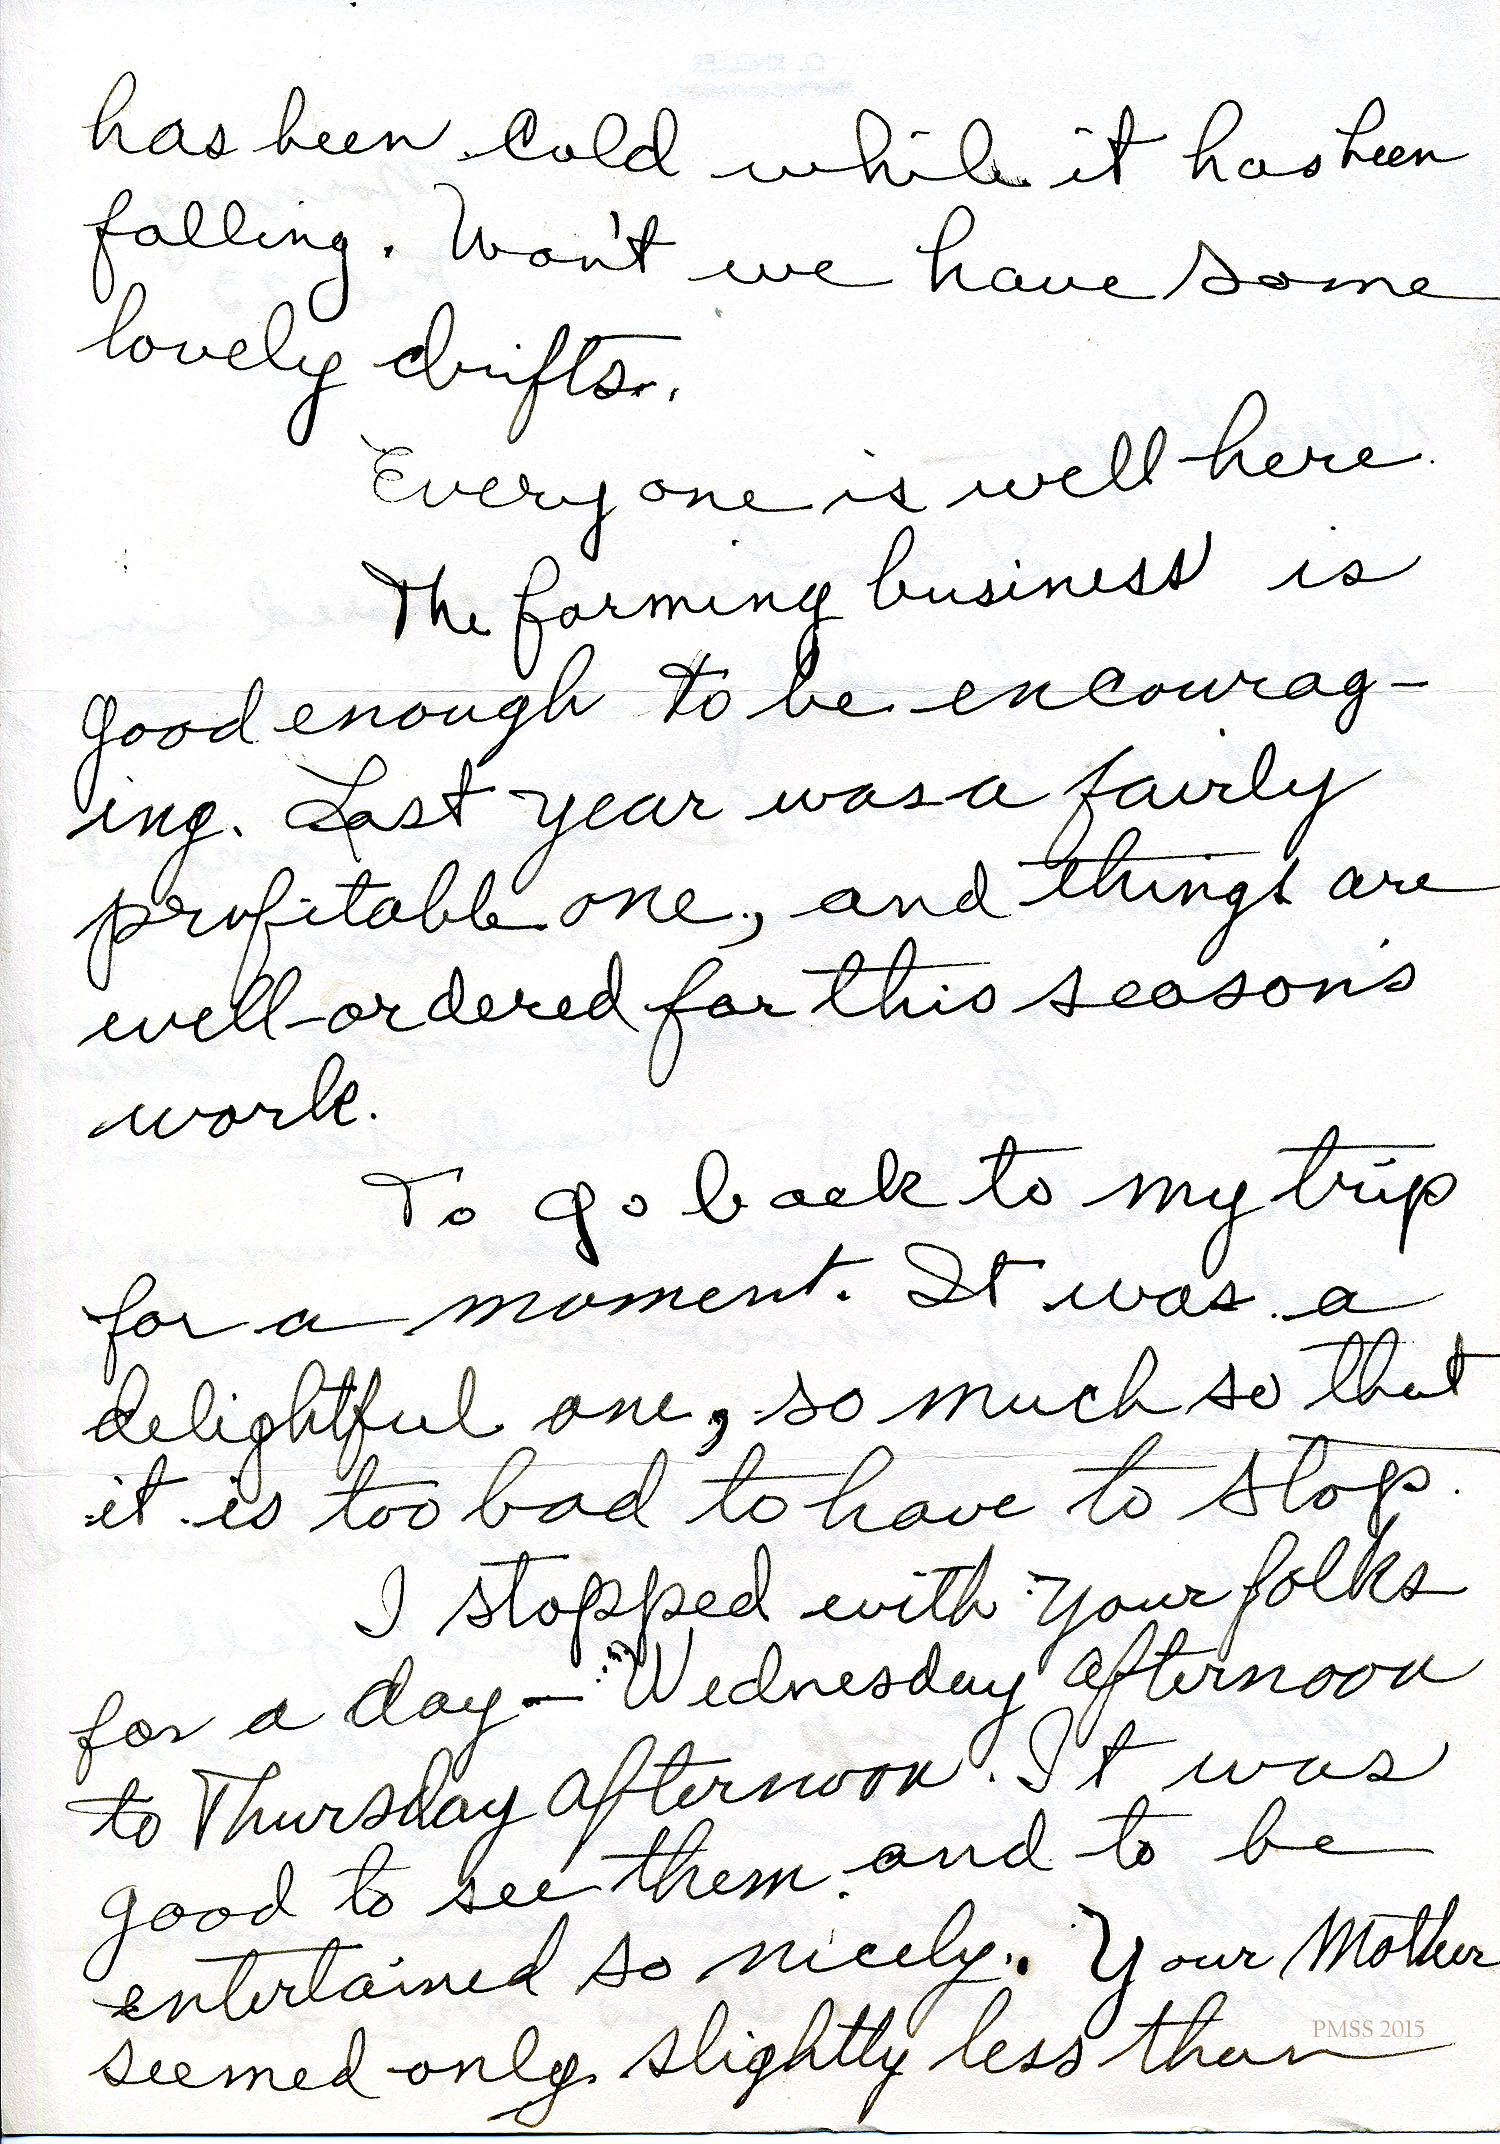 has been cold while it has been
falling. Won't we have some
lovely drifts.
Everyone is well here.
The farming business is
good enough to be encourag-
ing. Last year was a fairly
profitable one, and things are
well-ordered for this season's
work.
To go back to my trip
for a moment. It was a
delightful one, so much so that
it is too bad to have to stop.
I stopped with your folks
for a day — Wednesday afternoon
to Thursday afternoon. It was
good to see them and to be
entertained so nicely. Your Mother
PMSS 2015
seemed only slightly less than